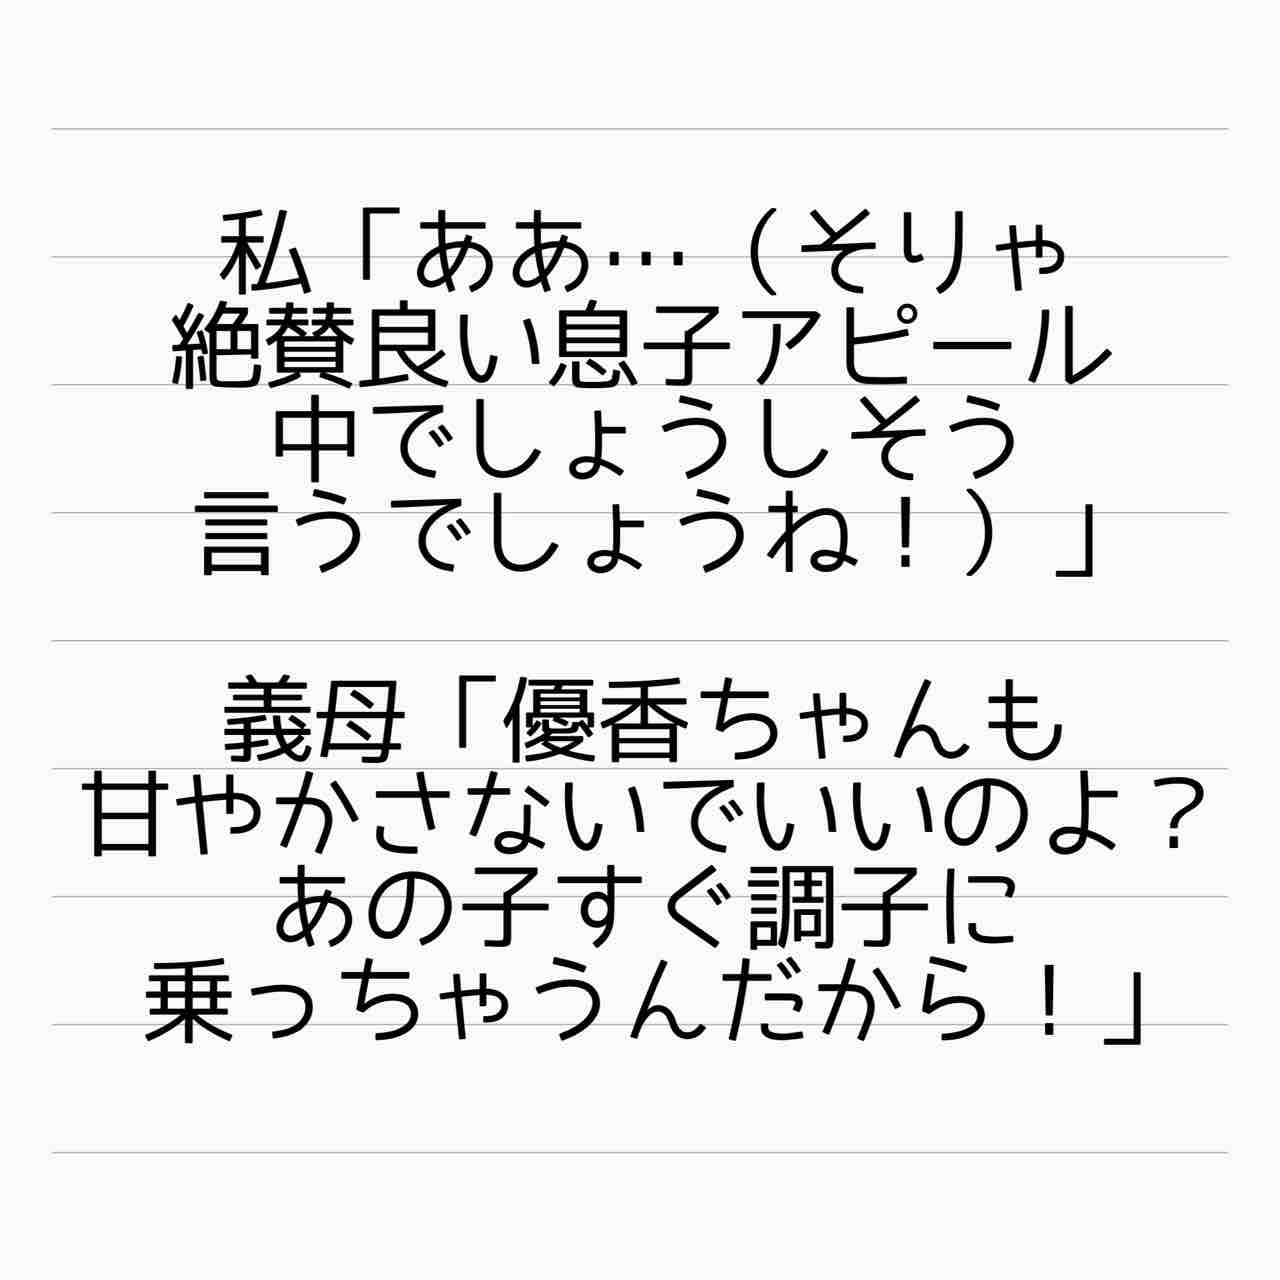 私「ああ…（そりゃ
絶賛良い息子アピール
中でしょうしそう
言うでしょうね！）」
義母「優香ちゃんも
甘やかさないでいいのよ？
あの子すぐ調子に
乗っちゃうんだから！」